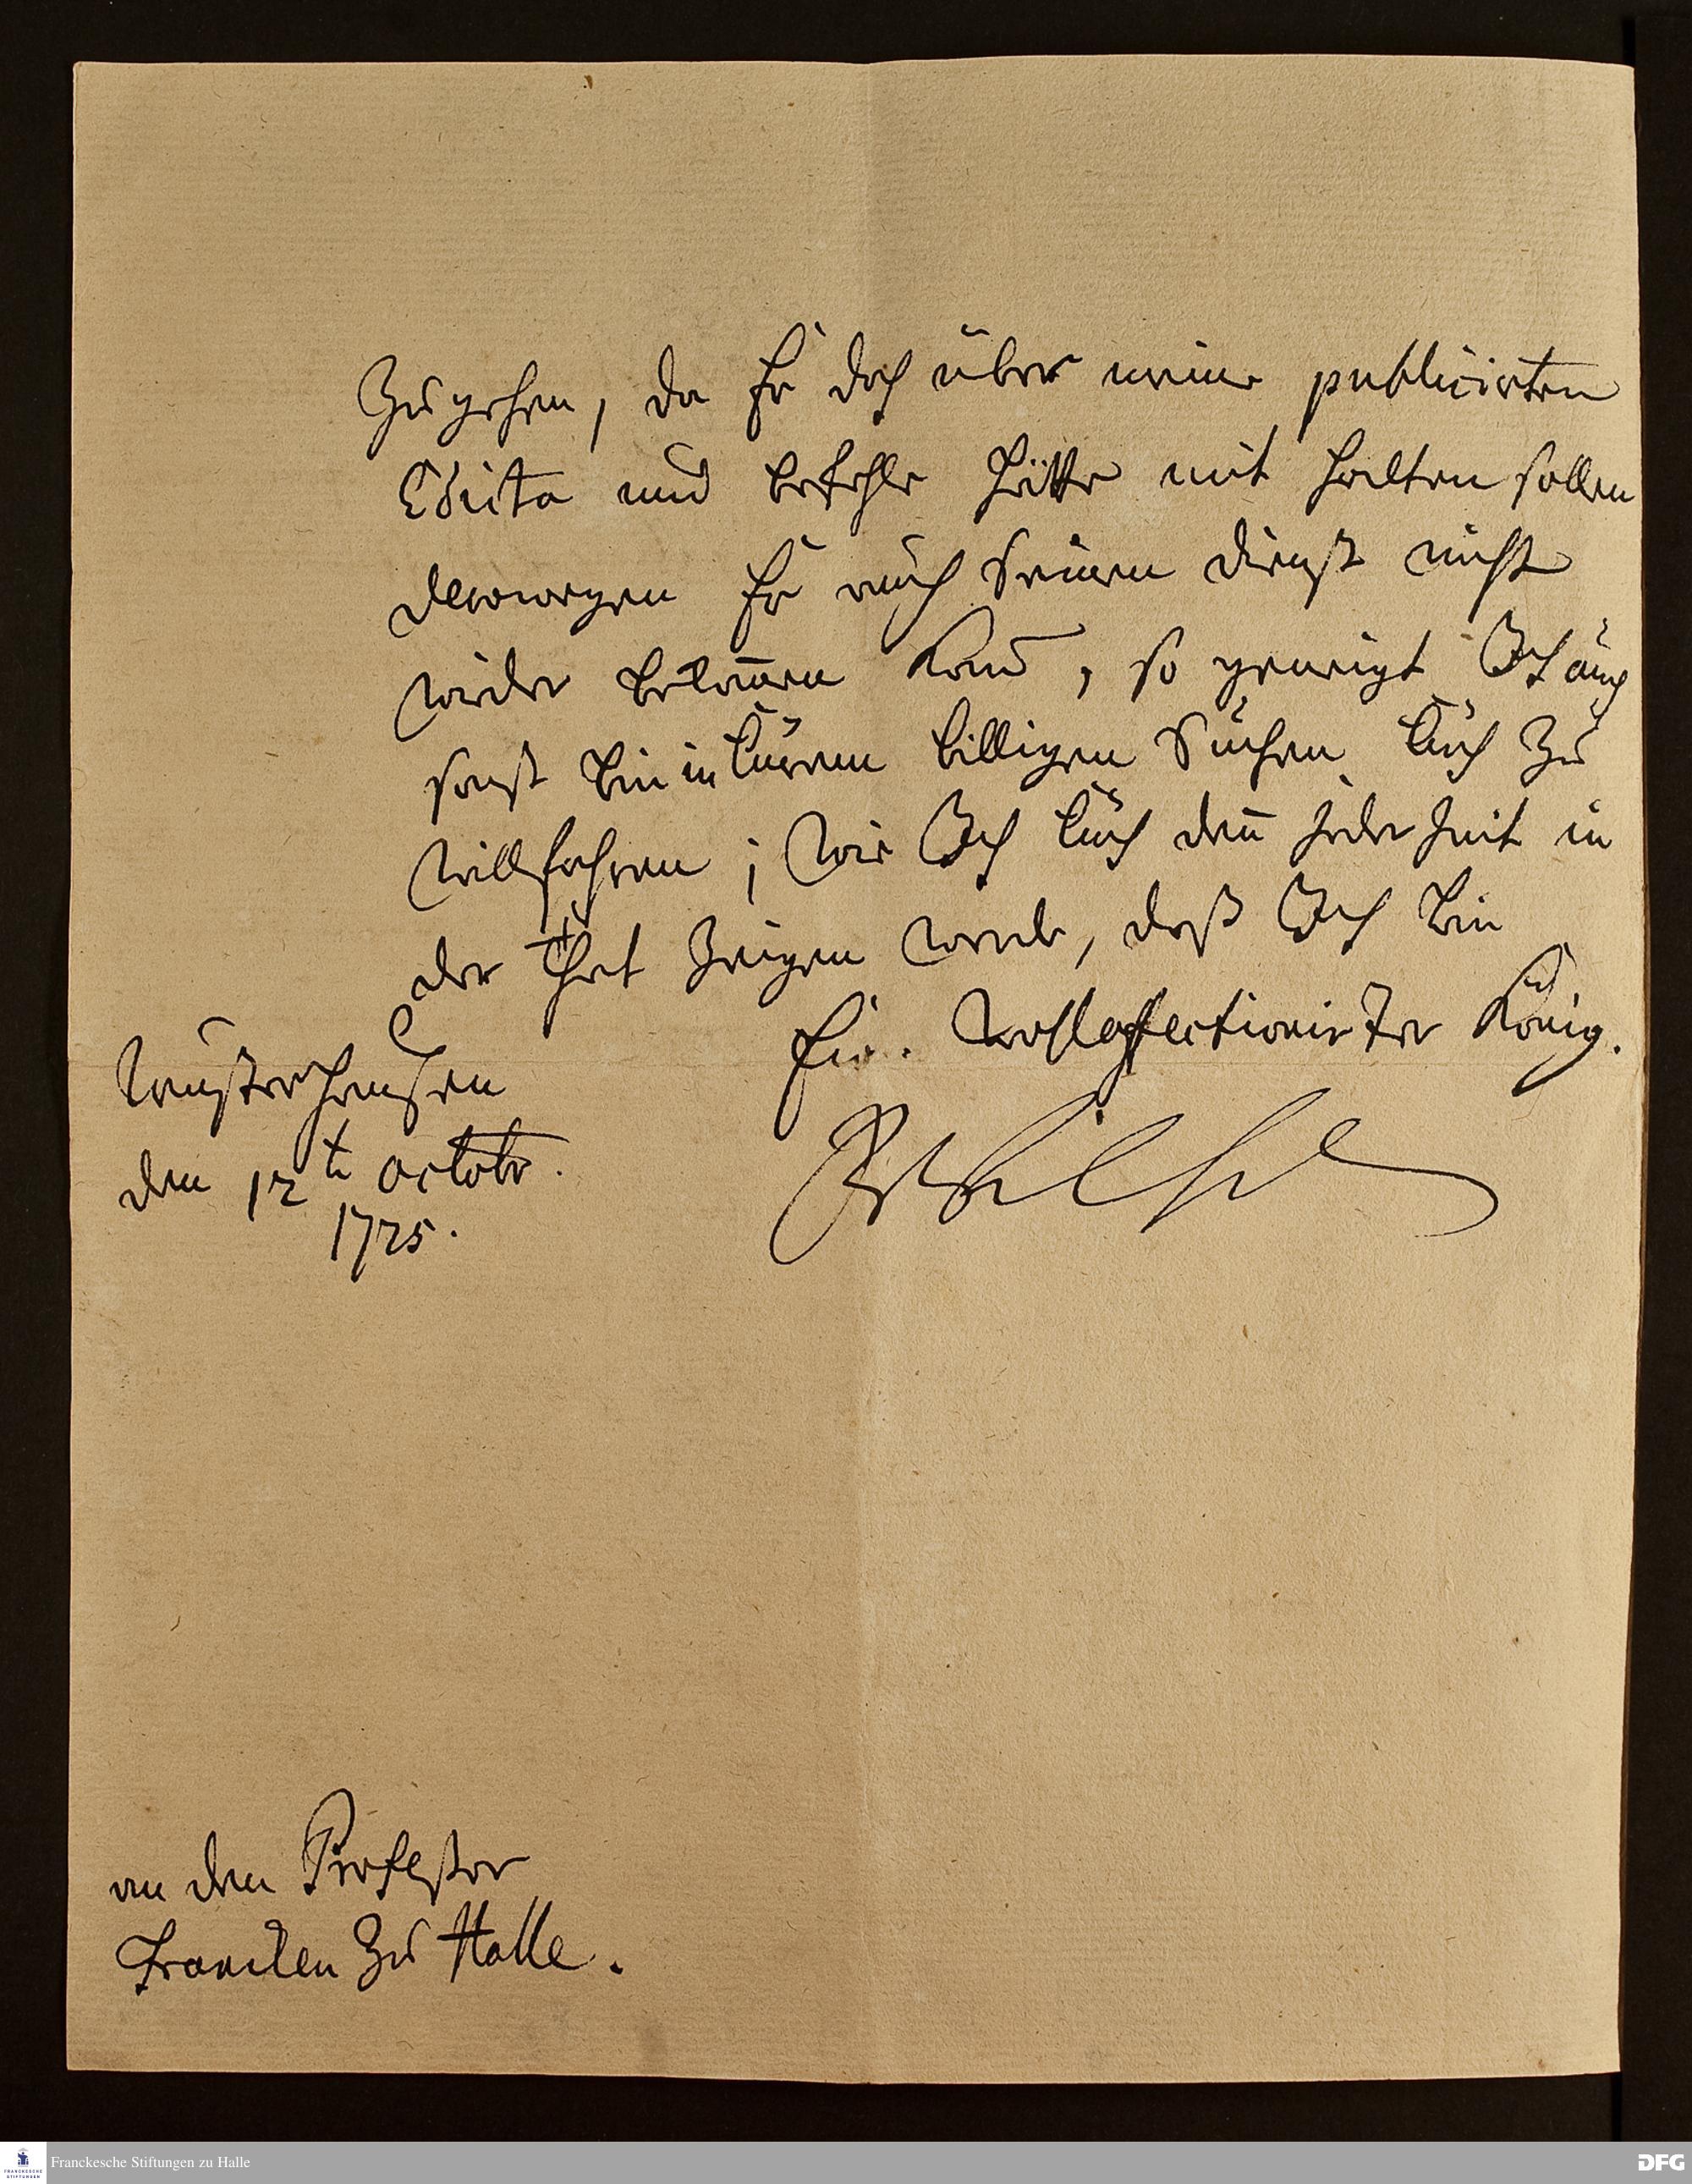 zugehen, da Er doch über meine publicirten
Edicta und befehle hätte mit halten sollen
deswegen Er auch Seinen dienst nicht
wieder bekom̄en kan, so geneigt Ich auch
sonst bin in Eurem billigen Suchen Euch zu
willfahren; Wie Ich Euch den̄ jederzeit in
der That zeigen werde, daß Ich bin
Eur. wohlaffectionirter König.
Wusterhausen
den 12t octobr.
1725.
FWilhelm
an den Professor
Francken zu Halle.
Franckesche Stiftungen zu Halle
FRANCKESCHE
STIFTUNGEN
DFG